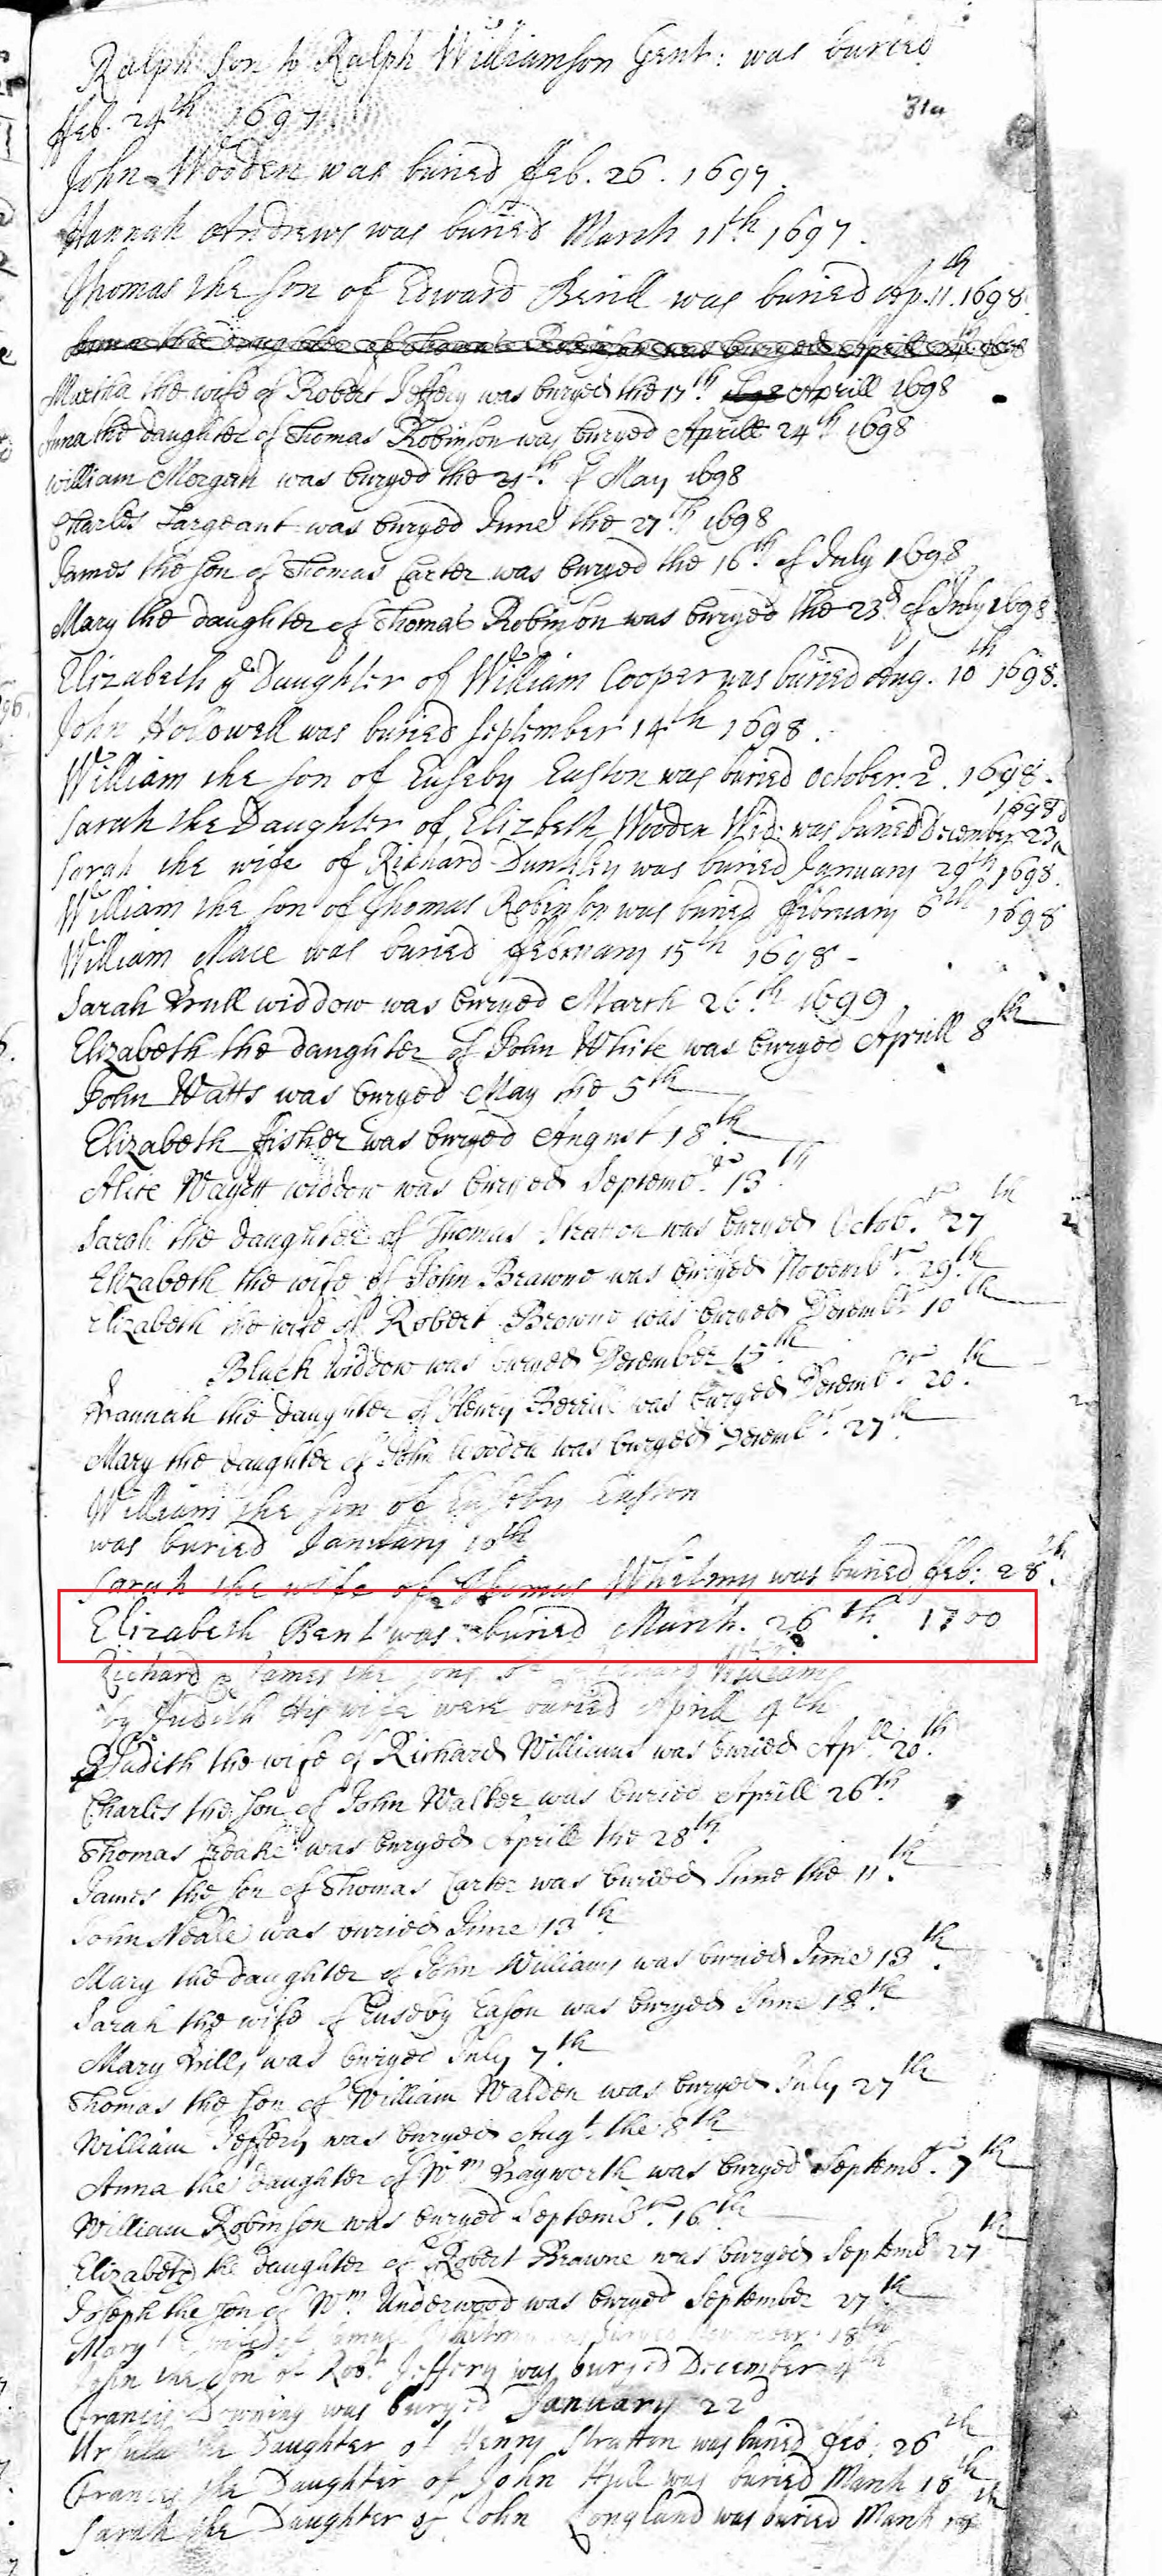 Ralph Son to Ralph Williamson Gent: was buried
31a
ffeb. 24th 1697
John Wooden was buried ffeb. 26. 1697.
Hannah Andrews was buried March 11th 1697.
Thomas the son of Edward Berill was buried Ap. 11th. 1698.
Martha the wife of Robert Jeffery was buryed the 17th Aprill 1698
Anna the daughter of Thomas Robinson was buryed Aprill 24th 1698
William Morgan was buryed the of May 1698
Charles Sargeant was buryed June the 27th 1698
James the son of Thomas Carter was buryed the 16th of July 1698
Mary the daughter of Thomas Robinson was buryed the 23d of July 1698
Elizabeth ye Daughter of William Cooper was buried Aug. 10th 1698.
John Hollowell was buried September 14th 1698.
William the son of Euseby Easton was buried October. 2d. 1698.
1698
Sarah the Daughter of Elizbeth Wooden Wid: was buried December 23d
Sarah the wife of Richard Dunkley was buried January 29th 1698.
William the son of Thomas Robinson was buried ffebruary 6th 1698
William Mace was buried ffebruary 15th 1698
Sarah widdow was buryed March 26th 1699
Elizabeth the daughter of John White was buryed Aprill 8th
John Watts was buryed May the 5th
Elizabeth ffisher was buryed August 18th
Alice widdow was buryed Septembr 13th
Sarah the daughter of Thomas Stratton was buryed Octobr 27th
Elizabeth the wife of John Browne was buryed Novembr 29th
Elizabeth the wife of Robert Browne was buryed Decembr 10th
Black widdow was buryed December 15th
Hannah the daughter of Henry Berrill was buryed Decembr 20th
Mary the daughter of John Wooden was buryed Decembr 27th
William the son of Euseby Easton
was buried January 10th
Sarah the wife of Thomas Whitmy was buried ffeb: 28th.
Elizabeth Bent was buried March. 26th. 1700
Richard & James the sons of Richard Williams
by Judith his wife were buried Aprill 9th
Judith the wife of Richard Williams was buried Apll 20th.
Charles the son of John Walker was buried Aprill 26th
Thomas was buryed Aprill the 28th
James the son of Thomas Carter was buried June the 11th.
John Neale was buried June 13th
Mary the daughter of John Williams was buried June 13th.
Sarah the wife of Euseby Eason was buryed June 18th
Mary Hill was buryed July 7th
Thomas the son of William Walden was buryed July 27th
William Jeffery was buryed Augt. the 8th
Anna the daughter of Wm Hayworth was buryed Septembr. 7th
William Robinson was buryed Septembr. 16th
Elizabeth the daughter of Robert Browne was buryed Septemb 27th
Joseph the son of Wm. Underwood was buryed September 27th
Mary 18th
John the son of Robt Jeffery was buryed December 4th
ffrancis Downing was buryed January 22d
Ursula the Daughter of Henry Stratton was buried ffeb: 26th
ffrances the Daughter of John Hill was buried March 18th
Sarah the Daughter of John Longland was buried March